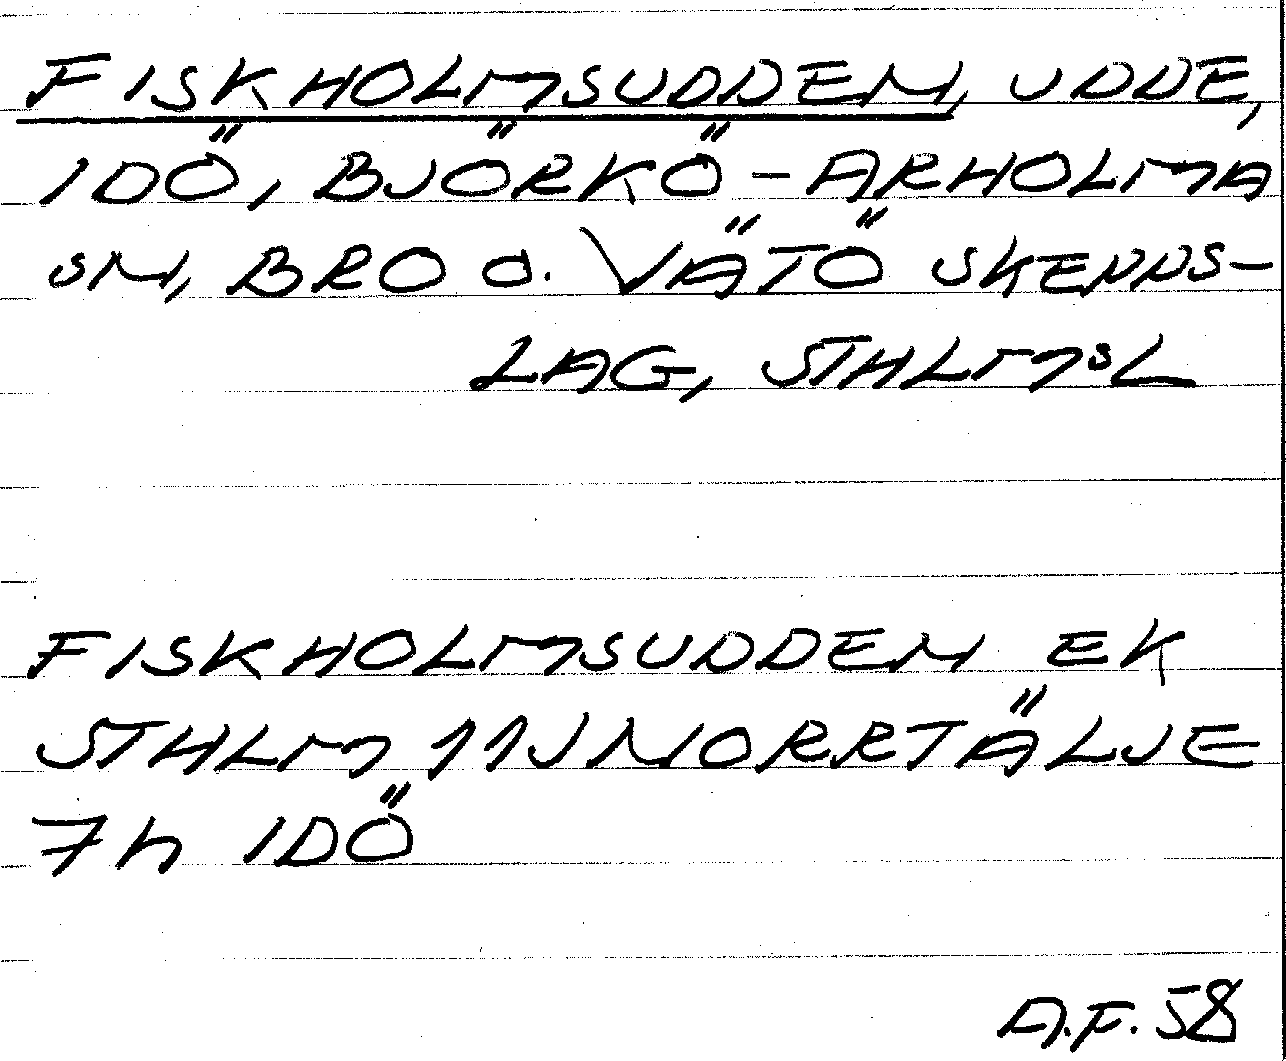 FISKHOLMSUDDEN, UDDE,
IDÖ, BJÖRKÖ-ARHOLMA
SN, BRO O. VÄTÖ SKEPPS-
LAG, STHLMSL
FISKHOLMSUDDEN EK
STHLM 11J NORRTÄLJE
7h IDÖ
A.F. 58